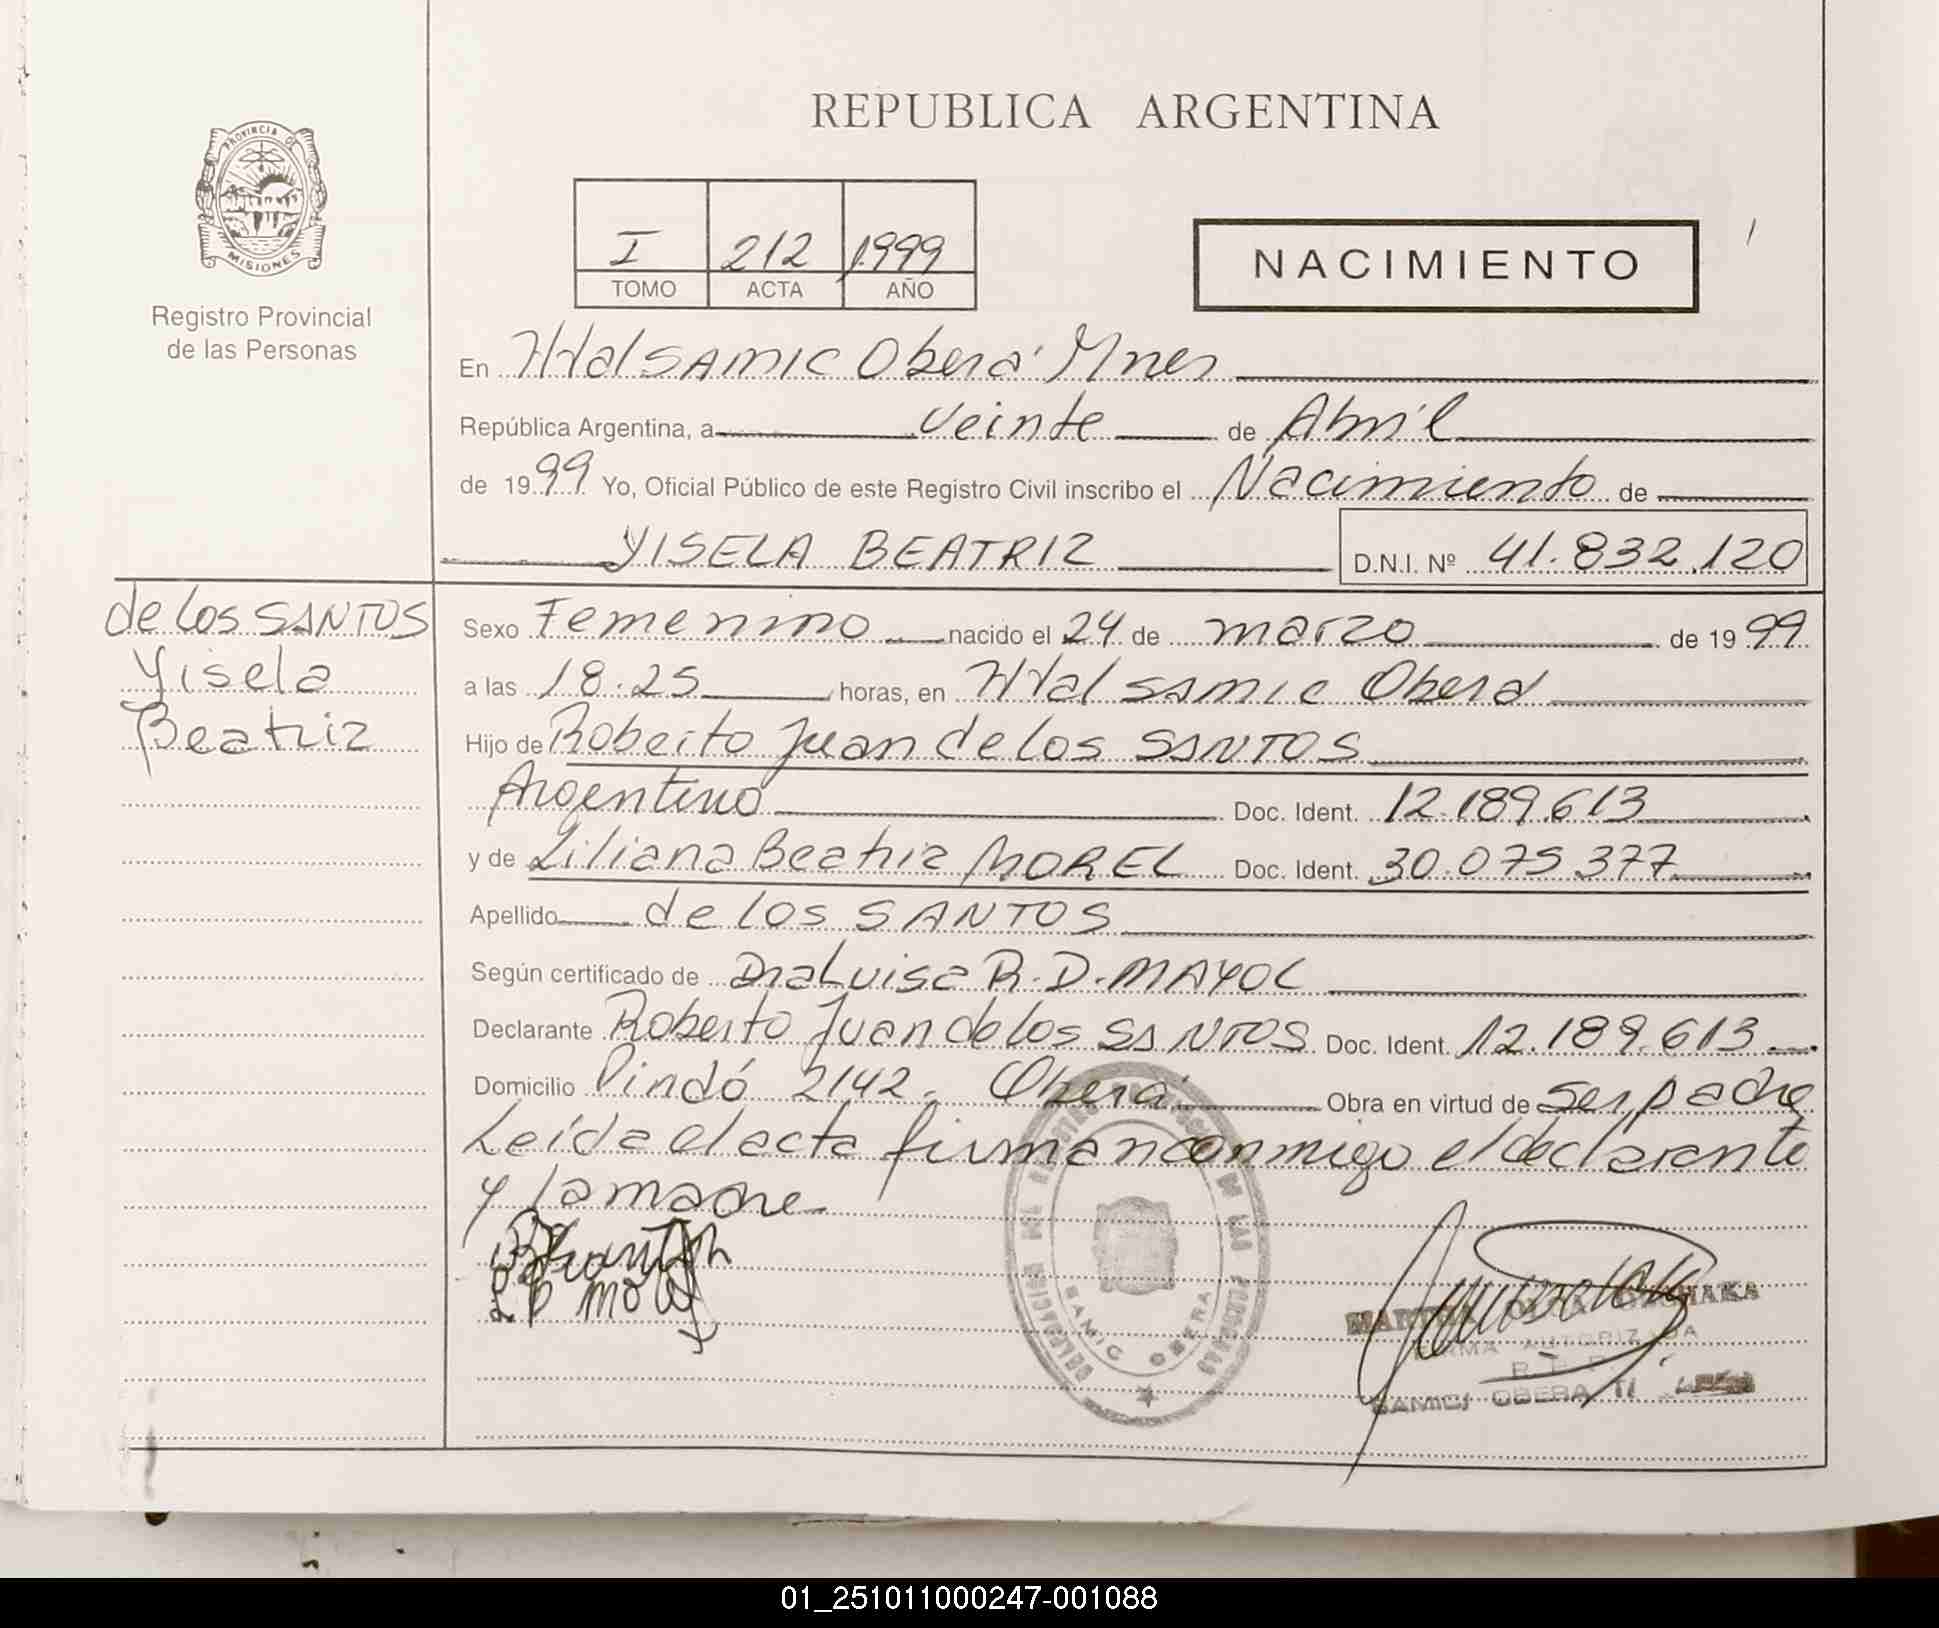 PROVINCIA DE
MISIONES
Registro Provincial
de las Personas
REPUBLICA ARGENTINA
I 212 1999
TOMO ACTA AÑO
NACIMIENTO
En Htal SAMIC Oberá Mnes
República Argentina, a veinte de Abril
de 1999 Yo, Oficial Público de este Registro Civil inscribo el Nacimiento de
YISELA BEATRIZ D.N.I. Nº 41.832.120
de los SANTOS
Yisela
Beatriz
Sexo Femenino nacido el 24 de marzo de 1999
a las 18.25 horas, en Htal SAMIC Oberá
Hijo de Roberto Juan de los SANTOS
Argentino Doc. Ident. 12.189.613
y de Liliana Beatriz MOREL Doc. Ident. 30.075.377
Apellido de los SANTOS
Según certificado de Dra Luisa R.D. MAYOL
Declarante Roberto Juan de los SANTOS Doc. Ident. 12.189.613
Domicilio Pindó 2142. Oberá Obra en virtud de ser padre
Leída el acta firman conmigo el declarante
y la madre
DELEGACION DEL REGISTRO DE LAS PERSONAS
SAMIC OBERA
MARTHA OLGA
FIRMA AUTORIZADA
SAMIC OBERA
01_251011000247-001088